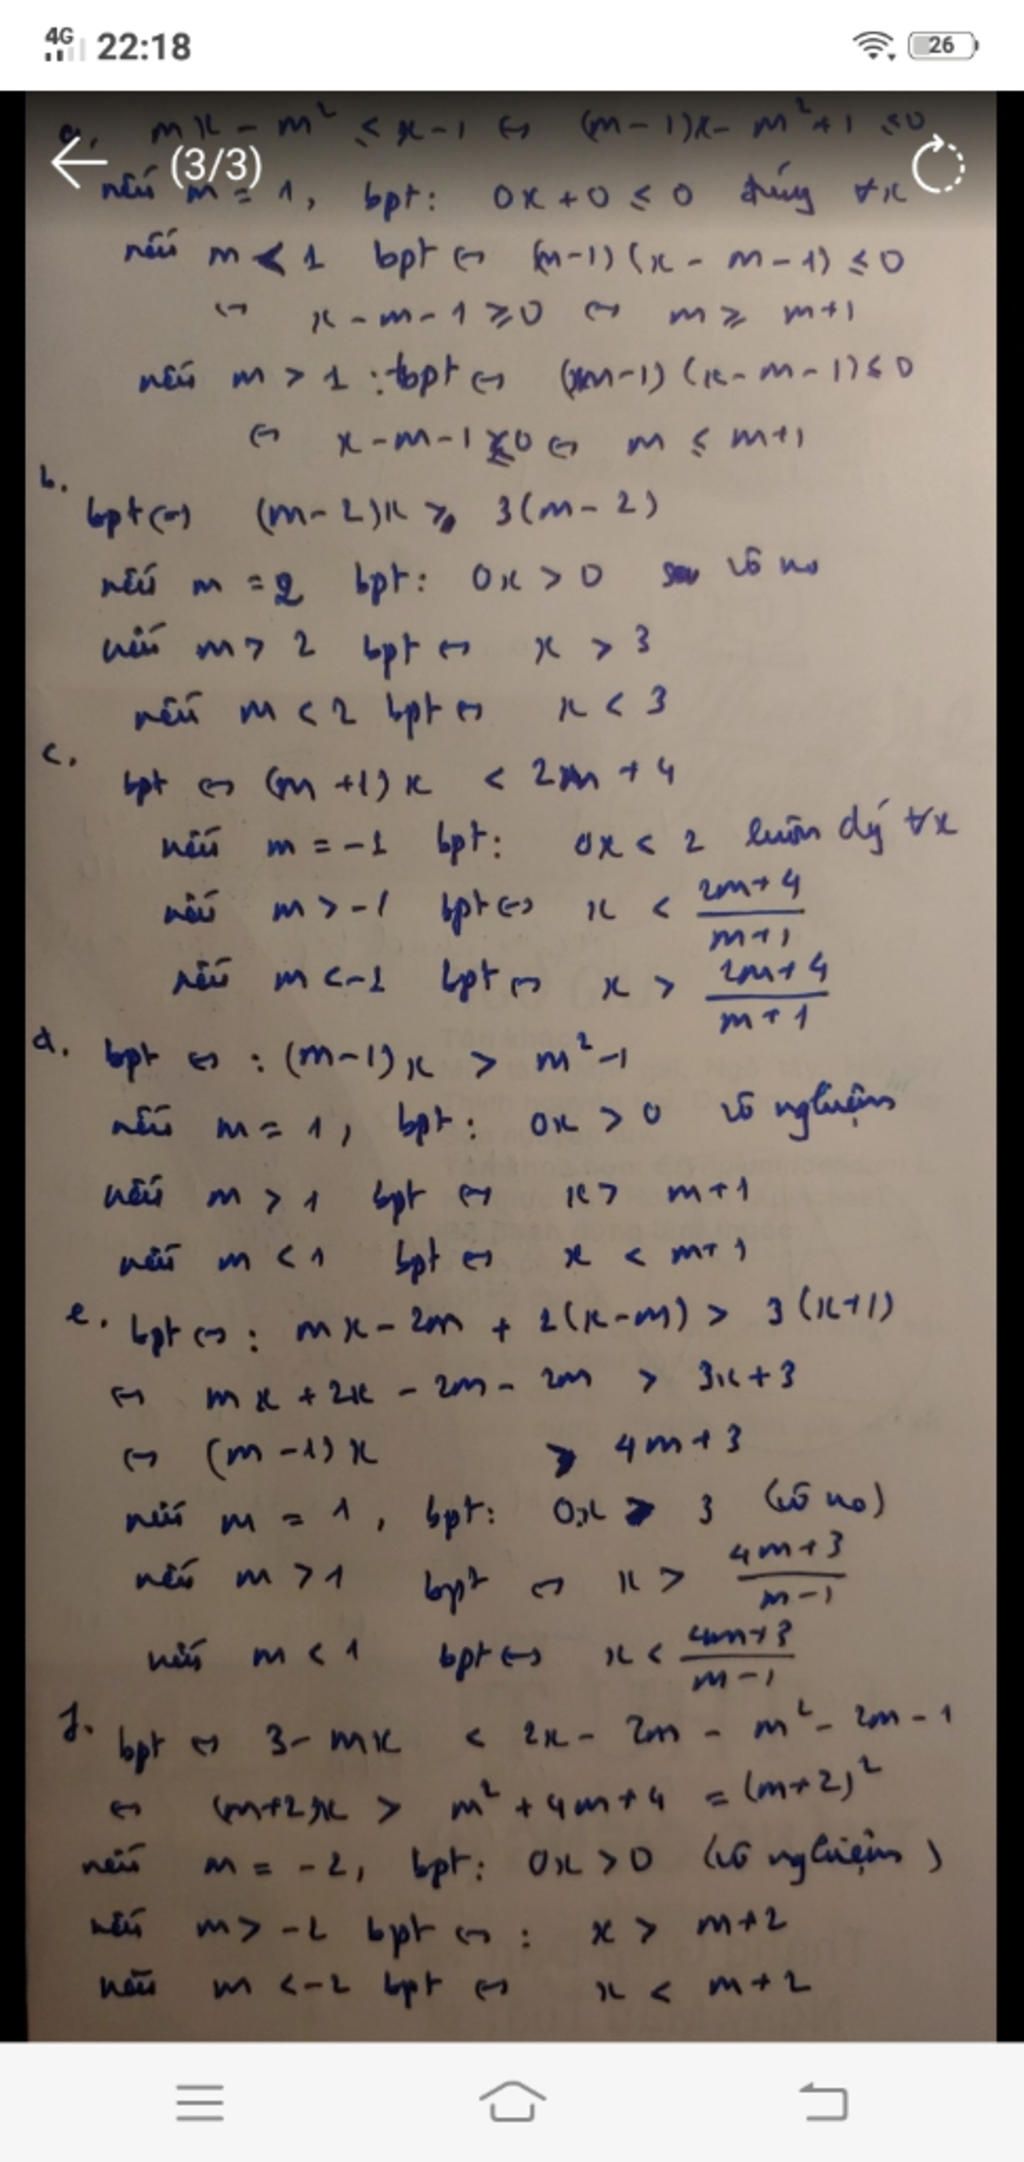 4G 22:18 26
a, mx - m² ≤ x - 1 ⇔ (m-1)x - m² + 1 ≤ 0
(3/3)
nếu m = 1, bpt: 0x + 0 ≤ 0 đúng ∀x
nếu m < 1 bpt ⇔ (m-1)(x - m - 1) ≤ 0
⇔ x - m - 1 ≥ 0 ⇔ m ≥ m+1
nếu m > 1 : bpt ⇔ (m-1)(x - m - 1) ≤ 0
⇔ x - m - 1 ≤ 0 ⇔ m ≤ m+1
b.
bpt ⇔ (m-2)x > 3(m-2)
nếu m = 2 bpt: 0x > 0 vô no
nếu m > 2 bpt ⇔ x > 3
nếu m < 2 bpt ⇔ x < 3
c.
bpt ⇔ (m+1)x < 2m + 4
nếu m = -1 bpt: 0x < 2 luôn ∀x
nếu m > -1 bpt ⇔ x < (2m+4)/(m+1)
nếu m < -1 bpt ⇔ x > (2m+4)/(m+1)
d. bpt ⇔ : (m-1)x > m² - 1
nếu m = 1, bpt: 0x > 0 vô nghiệm
nếu m > 1 bpt ⇔ x > m+1
nếu m < 1 bpt ⇔ x < m+1
e. bpt ⇔ : mx - 2m + 2(x-m) > 3(x+1)
⇔ mx + 2x - 2m - 2m > 3x + 3
⇔ (m-1)x > 4m + 3
nếu m = 1, bpt: 0x > 3 (vô no)
nếu m > 1 bpt ⇔ x > (4m+3)/(m-1)
nếu m < 1 bpt ⇔ x < (4m+3)/(m-1)
f. bpt ⇔ 3 - mx < 2x - 2m - m² - 2m - 1
⇔ (m+2)x > m² + 4m + 4 = (m+2)²
nếu m = -2, bpt: 0x > 0 (vô nghiệm)
nếu m > -2 bpt ⇔ : x > m+2
nếu m < -2 bpt ⇔ x < m+2